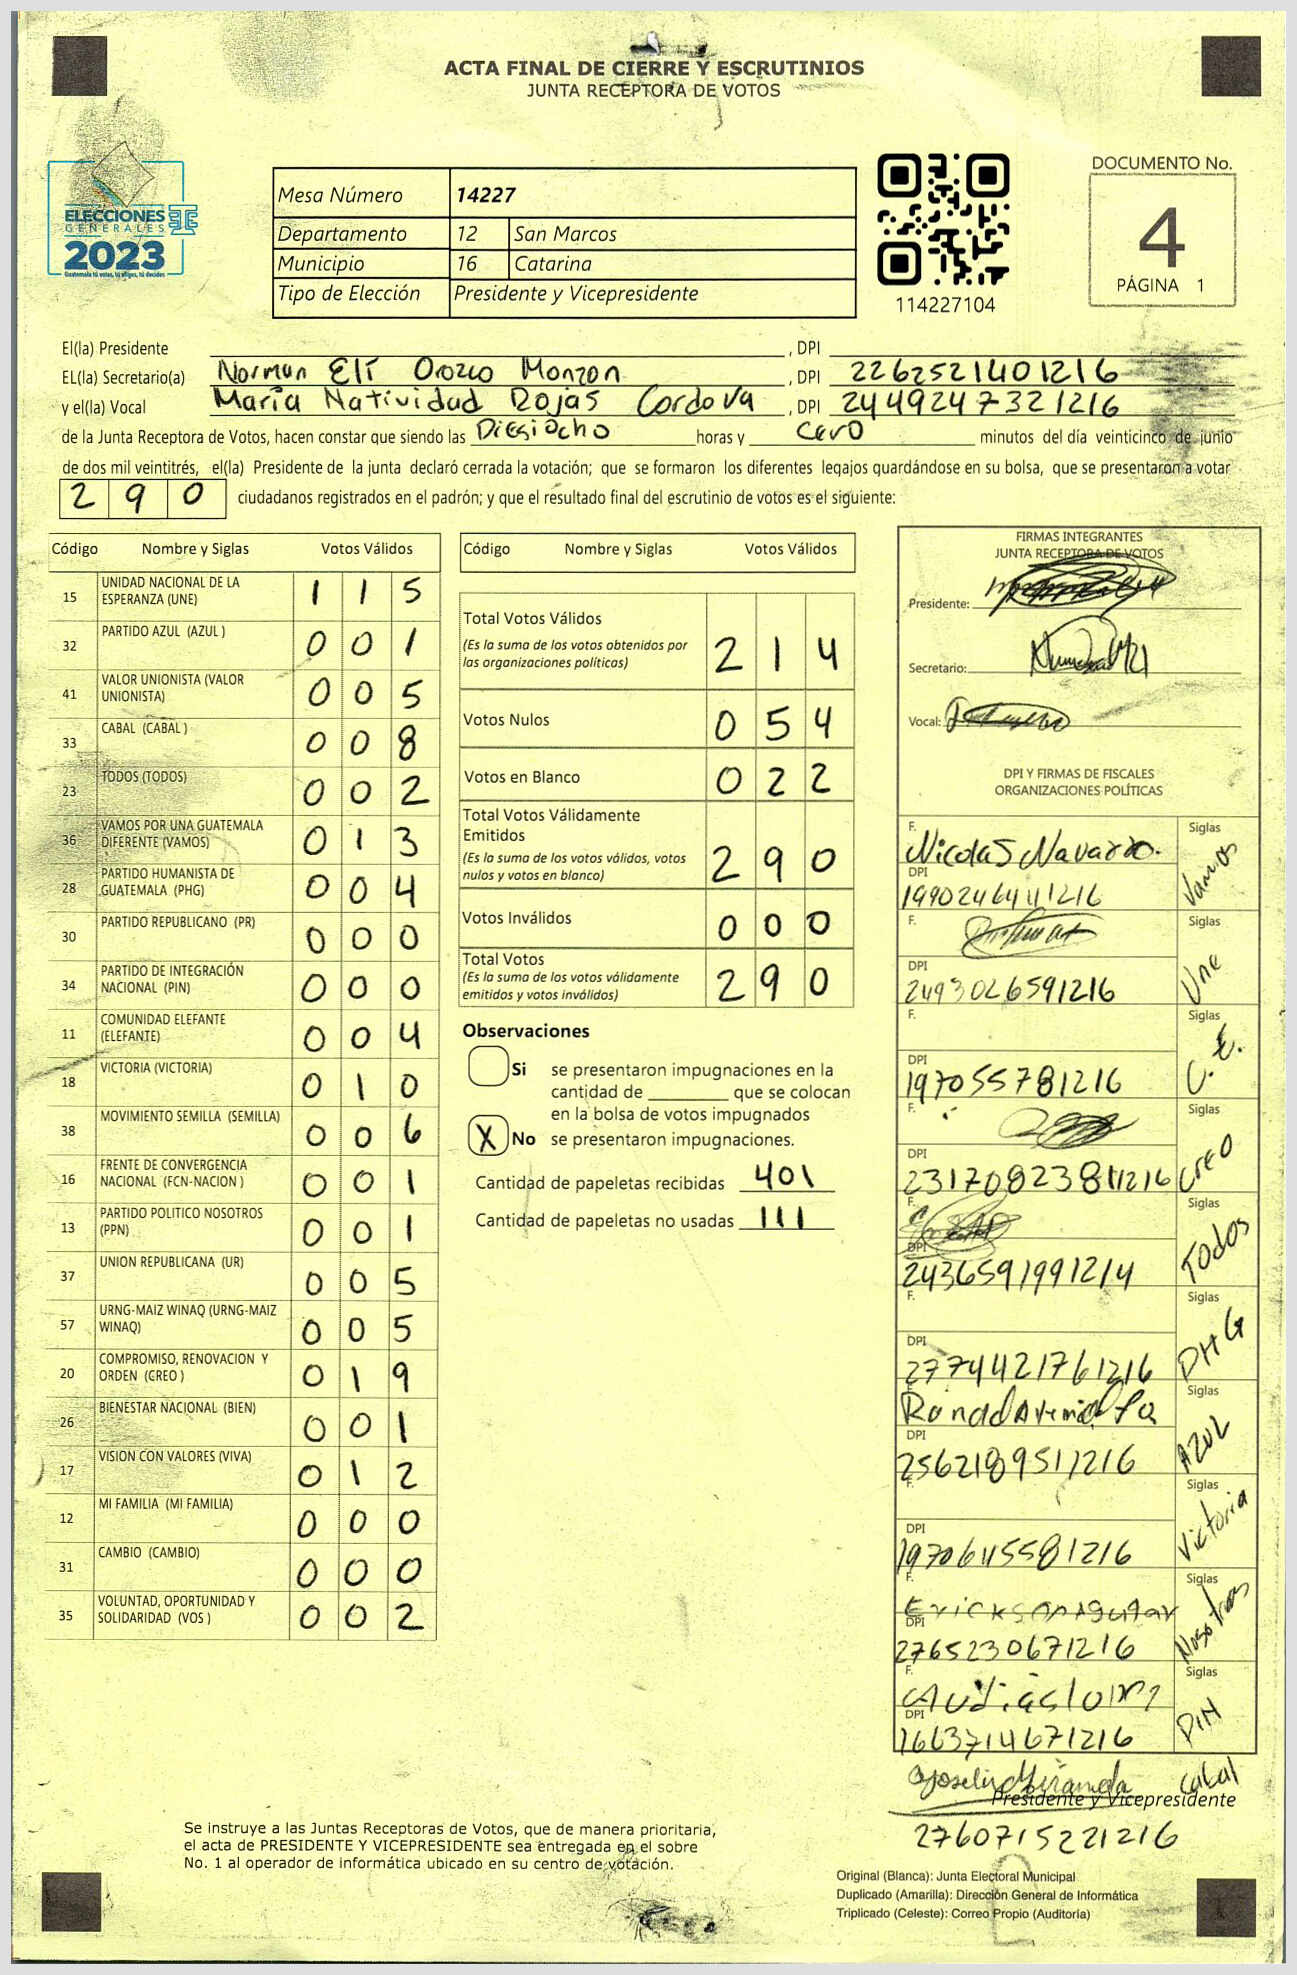 ACTA FINAL DE CIERRE Y ESCRUTINIOS
JUNTA RECEPTORA DE VOTOS
ELECCIONES
GENERALES
2023
Guatemala tú votas, tú eliges, tú decides
Mesa Número 14227
Departamento 12 San Marcos
Municipio 16 Catarina
Tipo de Elección Presidente y Vicepresidente
114227104
DOCUMENTO No.
4
PÁGINA 1
El(la) Presidente , DPI
EL(la) Secretario(a) Norman Elí Orozco Monzon , DPI 2262521401216
y el(la) Vocal María Natividad Rojas Cordova , DPI 2449247321216
de la Junta Receptora de Votos, hacen constar que siendo las Diesiocho horas y cero minutos del día veinticinco de junio
de dos mil veintitrés, el(la) Presidente de la junta declaró cerrada la votación; que se formaron los diferentes legajos guardándose en su bolsa, que se presentaron a votar
290 ciudadanos registrados en el padrón; y que el resultado final del escrutinio de votos es el siguiente:
Código Nombre y Siglas Votos Válidos
15 UNIDAD NACIONAL DE LA ESPERANZA (UNE) 1 1 5
32 PARTIDO AZUL (AZUL ) 0 0 1
41 VALOR UNIONISTA (VALOR UNIONISTA) 0 0 5
33 CABAL (CABAL ) 0 0 8
23 TODOS (TODOS) 0 0 2
36 VAMOS POR UNA GUATEMALA DIFERENTE (VAMOS) 0 1 3
28 PARTIDO HUMANISTA DE GUATEMALA (PHG) 0 0 4
30 PARTIDO REPUBLICANO (PR) 0 0 0
34 PARTIDO DE INTEGRACIÓN NACIONAL (PIN) 0 0 0
11 COMUNIDAD ELEFANTE (ELEFANTE) 0 0 4
18 VICTORIA (VICTORIA) 0 1 0
38 MOVIMIENTO SEMILLA (SEMILLA) 0 0 6
16 FRENTE DE CONVERGENCIA NACIONAL (FCN-NACION ) 0 0 1
13 PARTIDO POLITICO NOSOTROS (PPN) 0 0 1
37 UNION REPUBLICANA (UR) 0 0 5
57 URNG-MAIZ WINAQ (URNG-MAIZ WINAQ) 0 0 5
20 COMPROMISO, RENOVACION Y ORDEN (CREO ) 0 1 9
26 BIENESTAR NACIONAL (BIEN) 0 0 1
17 VISION CON VALORES (VIVA) 0 1 2
12 MI FAMILIA (MI FAMILIA) 0 0 0
31 CAMBIO (CAMBIO) 0 0 0
35 VOLUNTAD, OPORTUNIDAD Y SOLIDARIDAD (VOS ) 0 0 2
Código Nombre y Siglas Votos Válidos
Total Votos Válidos
(Es la suma de los votos obtenidos por las organizaciones políticas) 2 1 4
Votos Nulos 0 5 4
Votos en Blanco 0 2 2
Total Votos Válidamente Emitidos
(Es la suma de los votos válidos, votos nulos y votos en blanco) 2 9 0
Votos Inválidos 0 0 0
Total Votos
(Es la suma de los votos válidamente emitidos y votos inválidos) 2 9 0
Observaciones
Si se presentaron impugnaciones en la
cantidad de ________ que se colocan
en la bolsa de votos impugnados
X No se presentaron impugnaciones.
Cantidad de papeletas recibidas 401
Cantidad de papeletas no usadas 111
FIRMAS INTEGRANTES
JUNTA RECEPTORA DE VOTOS
Presidente:
Secretario:
Vocal:
DPI Y FIRMAS DE FISCALES
ORGANIZACIONES POLÍTICAS
F. Nicolas Navarro. Siglas Vamos
DPI
F. Siglas Une
DPI 2493026591216
F. Siglas C.E.
DPI 197055781216
F. Siglas Creo
DPI
F. Siglas Todos
DPI 2436591991214
F. Siglas PHG
DPI 2774421761216
Siglas AZUL
DPI 2562189511216
F. Siglas Victoria
DPI
F. Erickson Aguilar Siglas Nosotros
DPI 2765230671216
F. Siglas PIN
DPI 1663714671216
Joselin Miranda Cabal
Presidente y Vicepresidente
2760715221216
Se instruye a las Juntas Receptoras de Votos, que de manera prioritaria,
el acta de PRESIDENTE Y VICEPRESIDENTE sea entregada en el sobre
No. 1 al operador de informática ubicado en su centro de votación.
Original (Blanca): Junta Electoral Municipal
Duplicado (Amarilla): Dirección General de Informática
Triplicado (Celeste): Correo Propio (Auditoría)